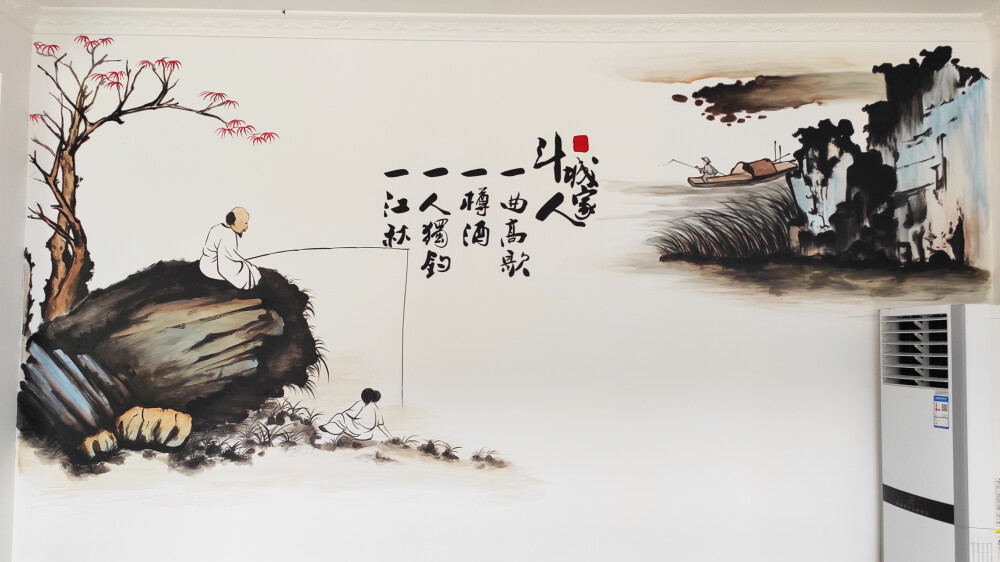 斗城家人
一曲高歌
一樽酒
一人獨釣
一江秋